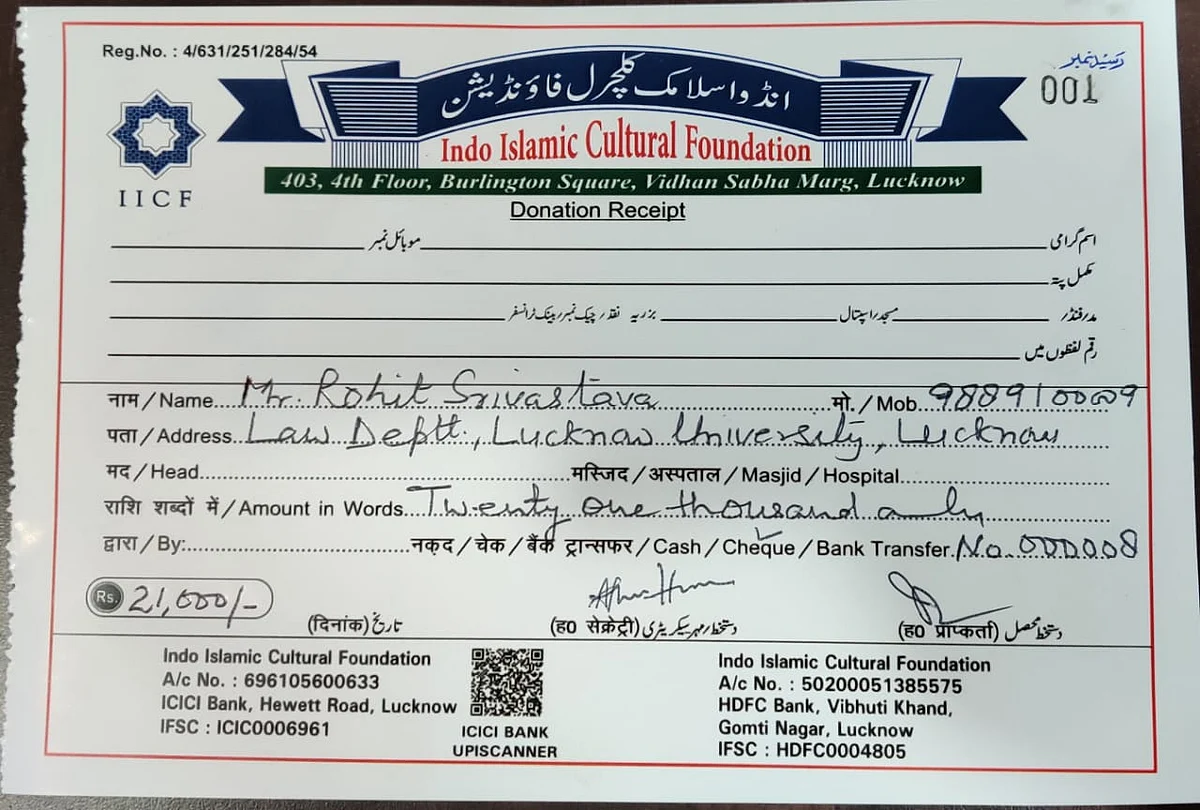 Reg.No. : 4/631/251/284/54
رسید نمبر
001
انڈو اسلامک کلچرل فاؤنڈیشن
IICF
Indo Islamic Cultural Foundation
403, 4th Floor, Burlington Square, Vidhan Sabha Marg, Lucknow
Donation Receipt
اسم گرامی موبائل نمبر
مکمل پتہ
مدرفنڈر مسجد/اسپتال بذریہ نقد/چیک نمبر/بینک ٹرانسفر
رقم لفظوں میں
नाम / Name Mr. Rohit Srivastava मो. / Mob. 9889100009
पता / Address Law Deptt., Lucknow University, Lucknow
मद / Head मस्जिद / अस्पताल / Masjid / Hospital
राशि शब्दों में / Amount in Words Twenty one thousand only
द्वारा / By: नकद / चेक / बैंक ट्रान्सफर / Cash / Cheque / Bank Transfer. No. 000008
Rs. 21,000/-
(दिनांक) تاریخ (ह0 सेक्रेट्री) دستخط/مہر سیکریٹری (ह0 प्राप्कर्ता) دستخط محصل
Indo Islamic Cultural Foundation
A/c No. : 696105600633
ICICI Bank, Hewett Road, Lucknow
IFSC : ICIC0006961
ICICI BANK
UPISCANNER
Indo Islamic Cultural Foundation
A/c No. : 50200051385575
HDFC Bank, Vibhuti Khand,
Gomti Nagar, Lucknow
IFSC : HDFC0004805